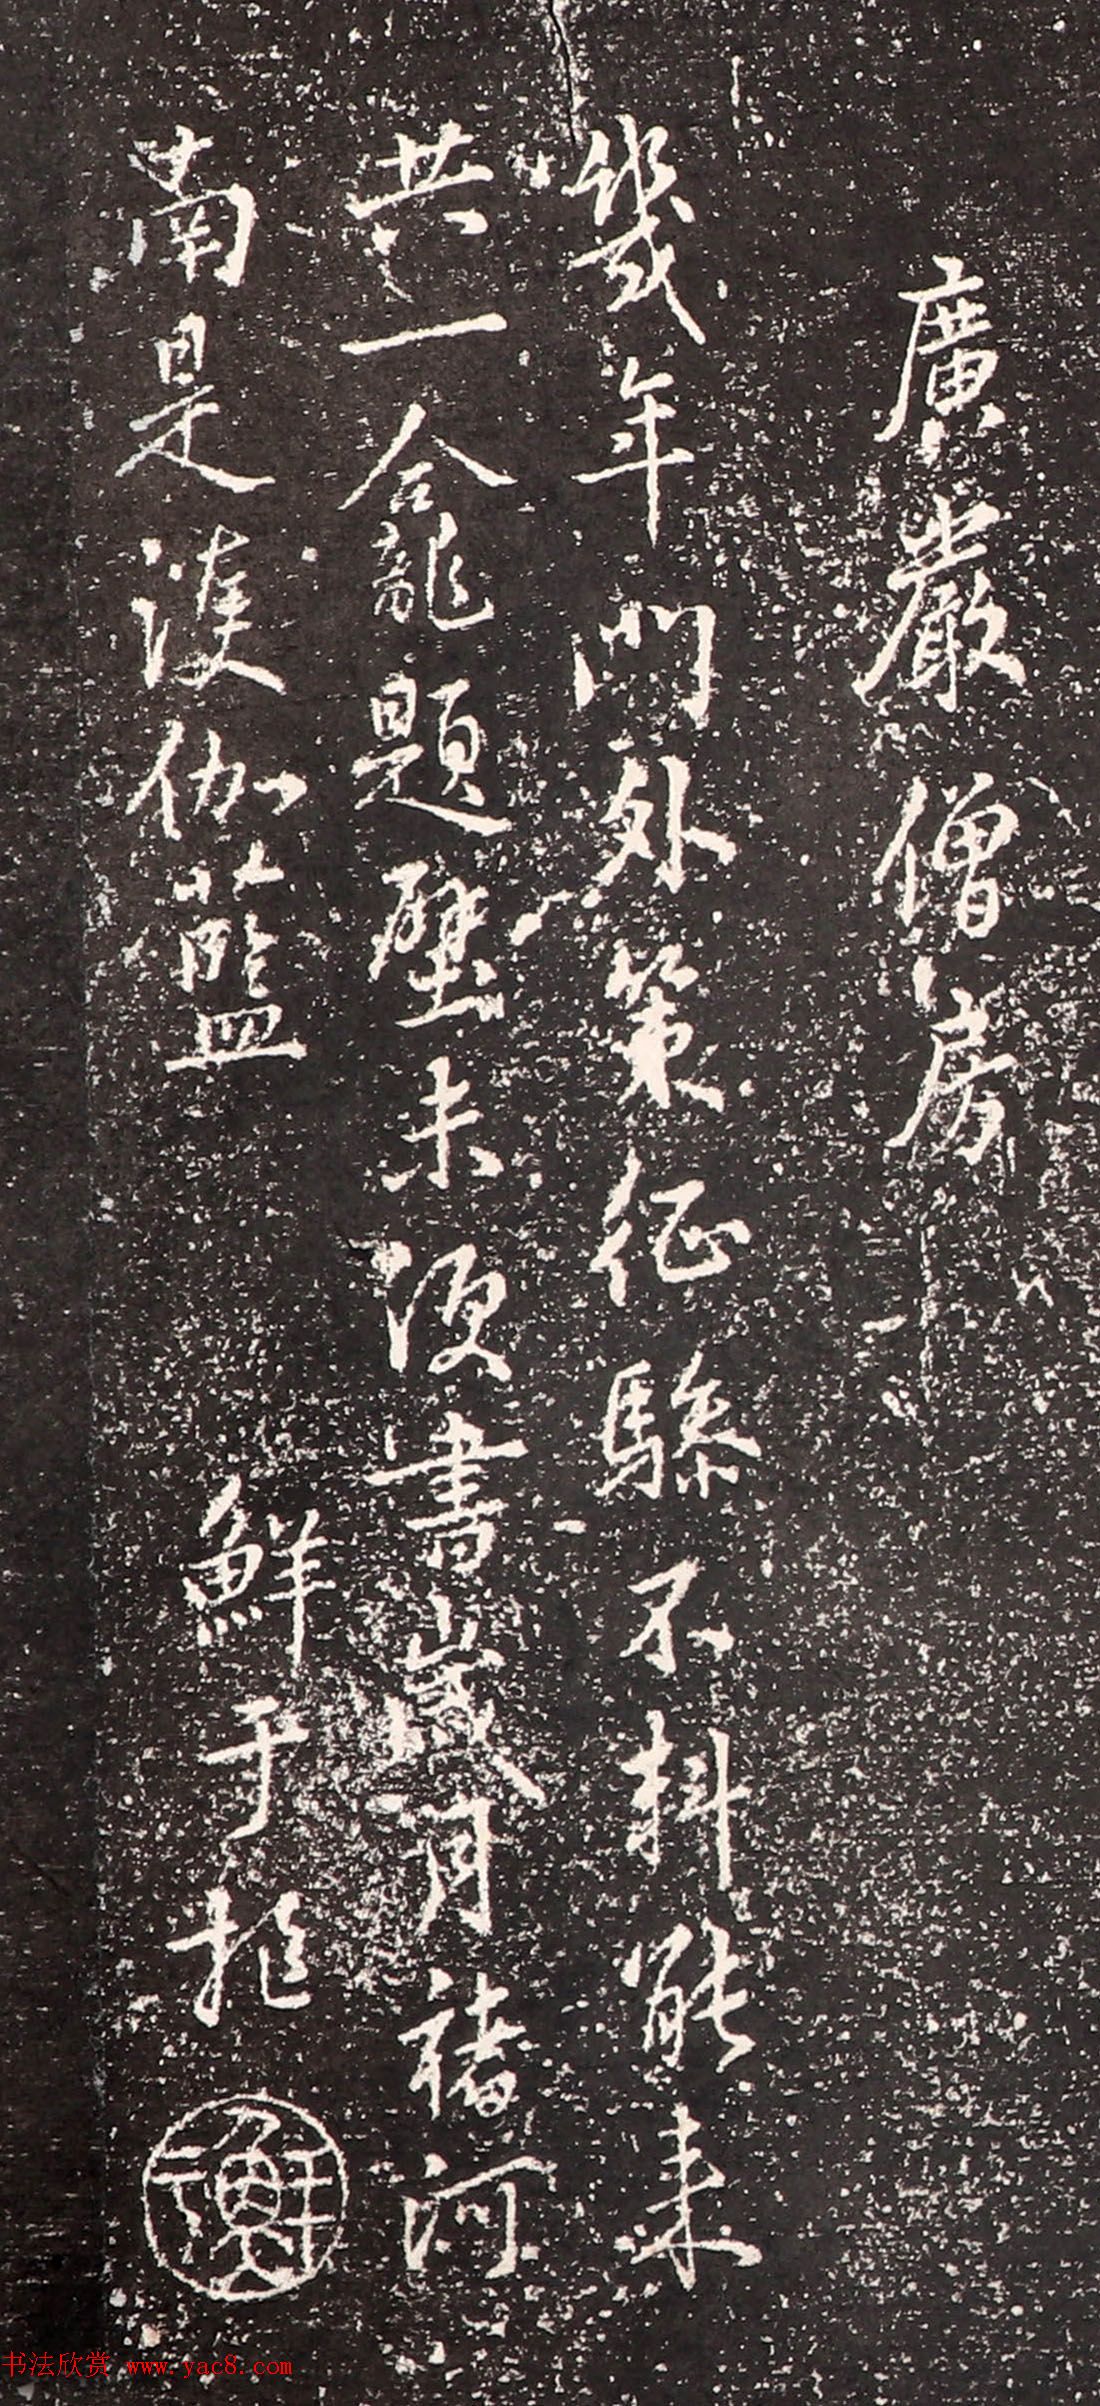 廣嚴僧房
幾年門外策征驂不料能来
共一龕題壁未須書歲月禇河
南是護伽藍
鮮于
书法欣赏 www.yac8.com